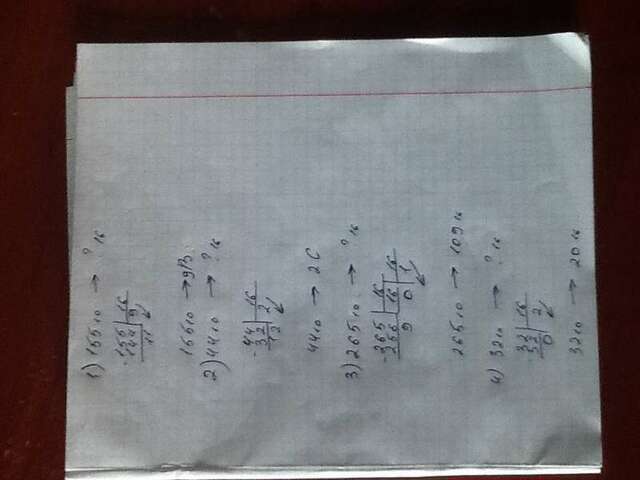 1) 155₁₀ → ?₁₆
-155 | 16
144 | 9
11
155₁₀ → 9B
2) 44₁₀ → ?₁₆
-44 | 16
32 | 2
12
44₁₀ → 2C
3) 265₁₀ → ?₁₆
-265 | 16
256 | 16 | 16
9 0 1
265₁₀ → 109₁₆
4) 32₁₀ → ?₁₆
32 | 16
32 | 2
0
32₁₀ → 20₁₆